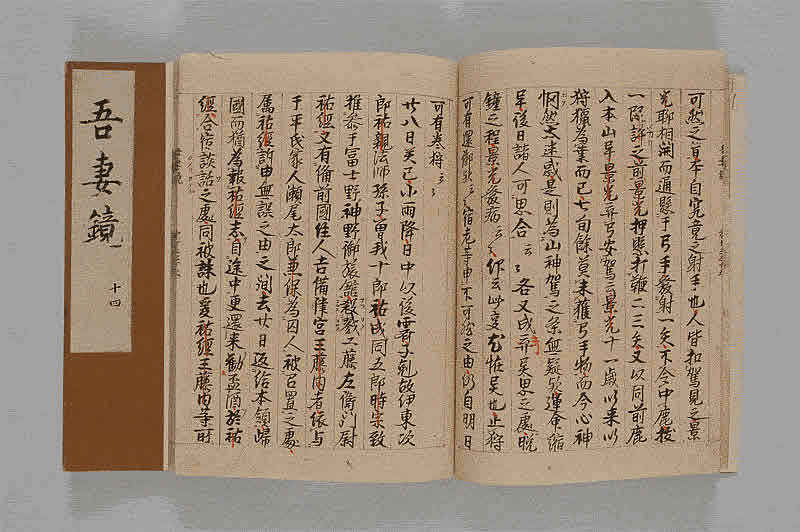 可然之由本自究竟之射手也人皆扣駕見之景
光聊相漏而通懸于弓手發射一矢不令中鹿拔
一段許之前景光押懸打鞭二三矢又以同前鹿
入本山早景光弃弓安駕云景光十一歳以来以
狩獵為業而已七旬餘莫未獲弓手物而今心神
惘然太迷惑是則為山神駕之条無疑欤運命縮
早後日諸人可思合云々各又成奇異思之處晩
鐘之程景光發病云々仰云此事尤恠異也止狩
可有還御欤云々宿老等申不可然之由仍自明日
可有巻狩云々
廿八日癸巳小雨降日中以後霽子剋故伊東次
郎祐親法師孫子曽我十郎祐成同五郎時宗致
推参于冨士野神野御旅舘殺戮工藤左衛門尉
祐經又有備前國住人吉備津宮王藤内者依与
于平氏家人瀬尾太郎兼保為囚人被召置之處
属祐經訴申無誤之由之間去廿日返給本領歸
國而猶為報祐經志自途中更還来勧盃酒於祐
經合宿談話之處同被誅也爰祐經王藤内等所
吾妻鏡
十四